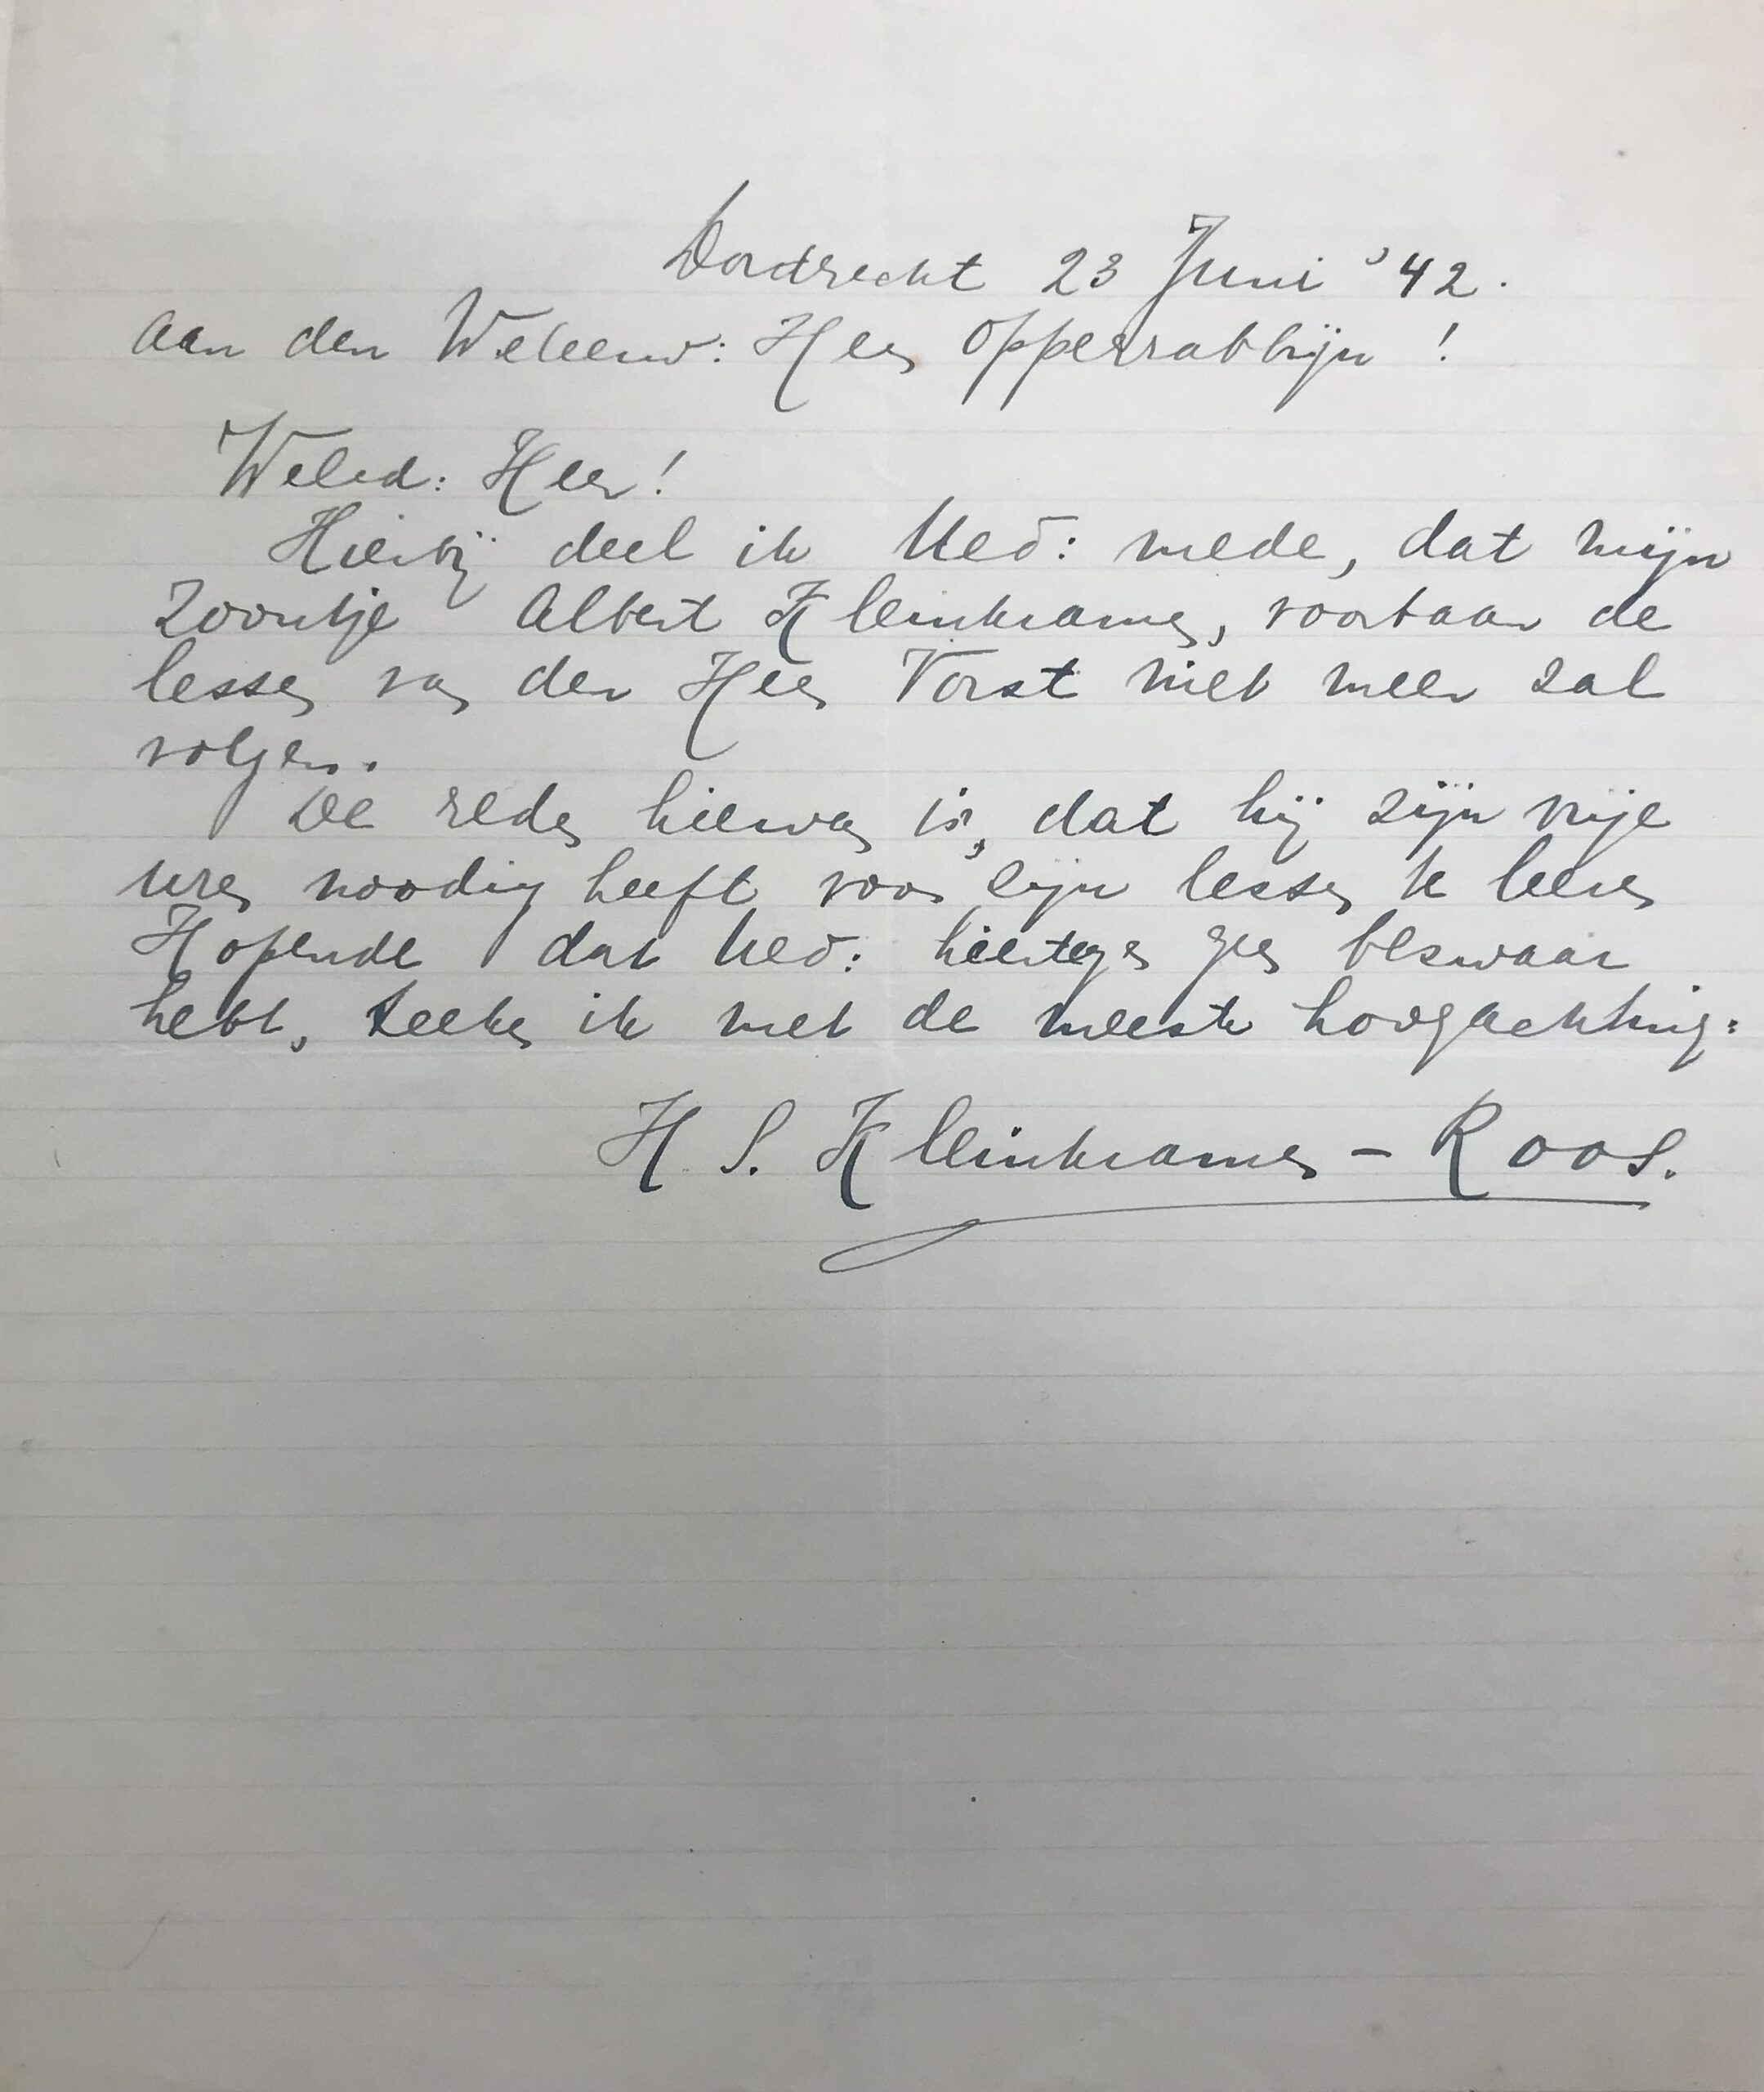 Dordrecht 23 Juni '42.
Aan den Weleerw: Heer Opperrabbijn!
Weled: Heer!
Hierbij deel ik Ued: mede, dat mijn
zoontje Albert Kleinkramer, voortaan de
lessen van den Heer Vorst niet meer zal
volgen.
De reden hiervan is, dat hij zijn vrije
uren noodig heeft voor zijn lessen te leeren
Hopende dat Ued: hiertegen geen bezwaar
hebt, teeken ik met de meeste hoogachting:
H. S. Kleinkramer - Roos.